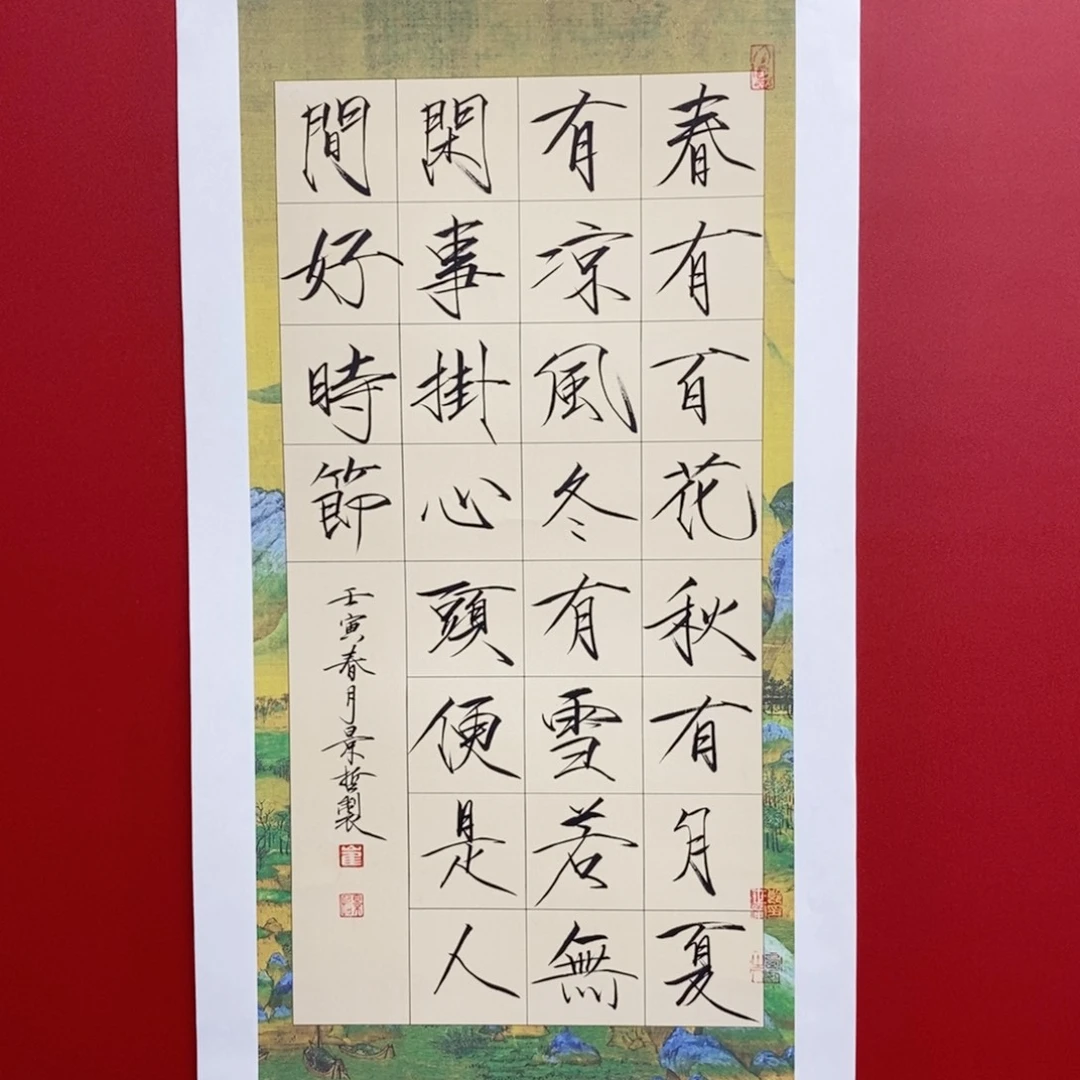 春有百花秋有月夏
有涼風冬有雪若無
閑事掛心頭便是人
間好時節
壬寅春月景哲製